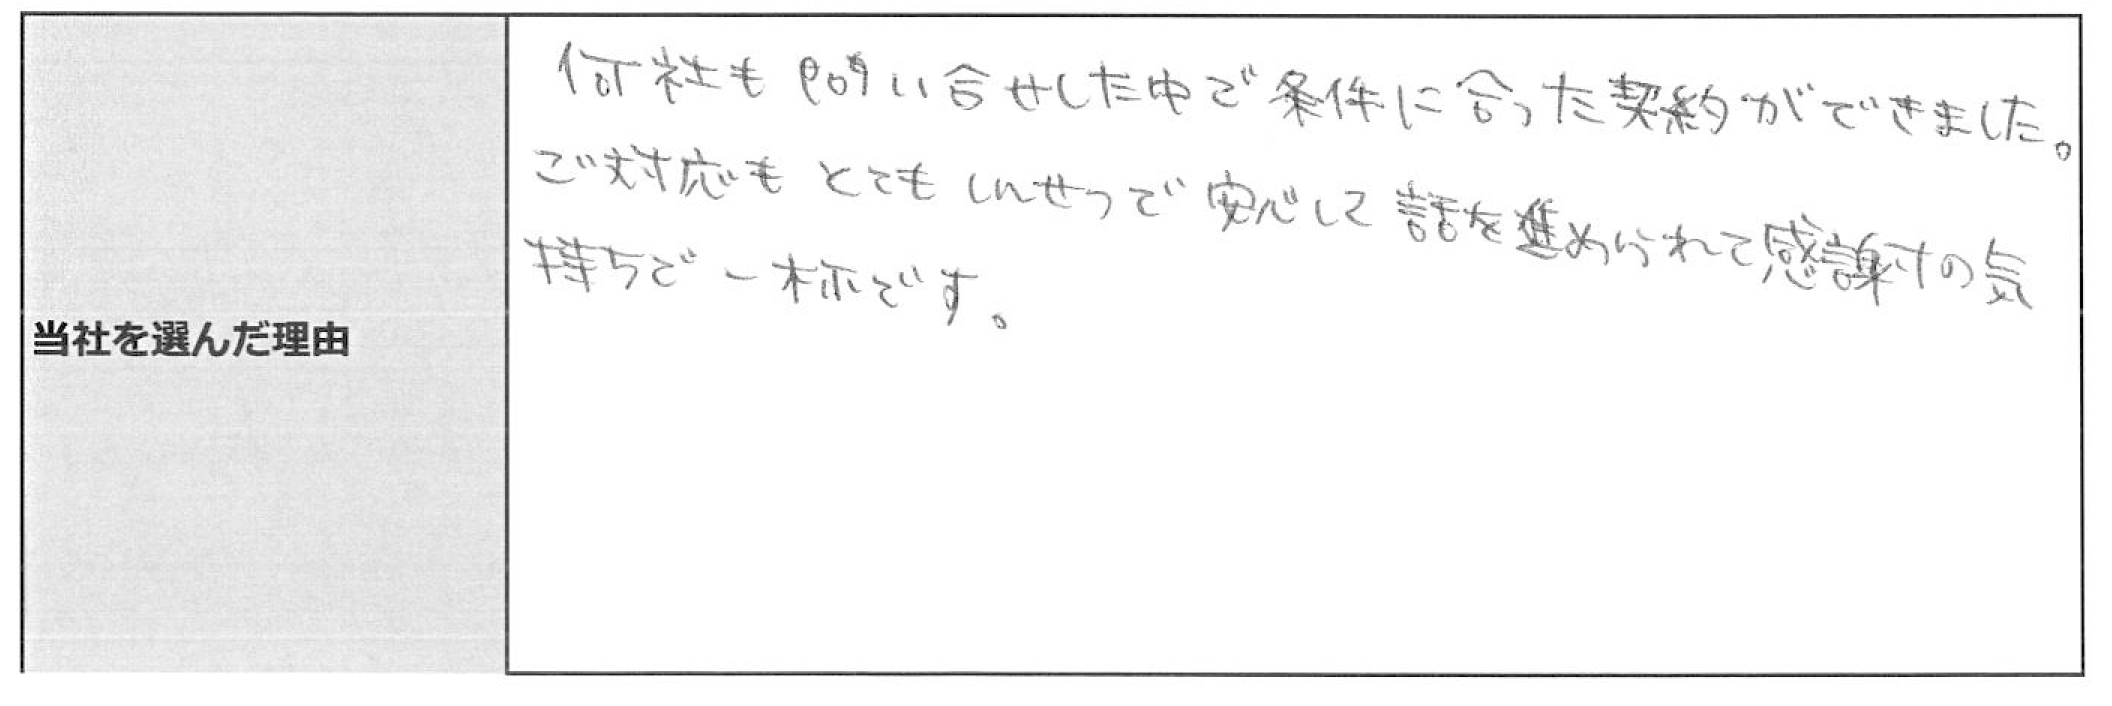 当社を選んだ理由
何社も問い合せした中で条件に合った契約ができました。
ご対応もとてもしんせつで安心して話を進められて感謝の気
持ちで一杯です。